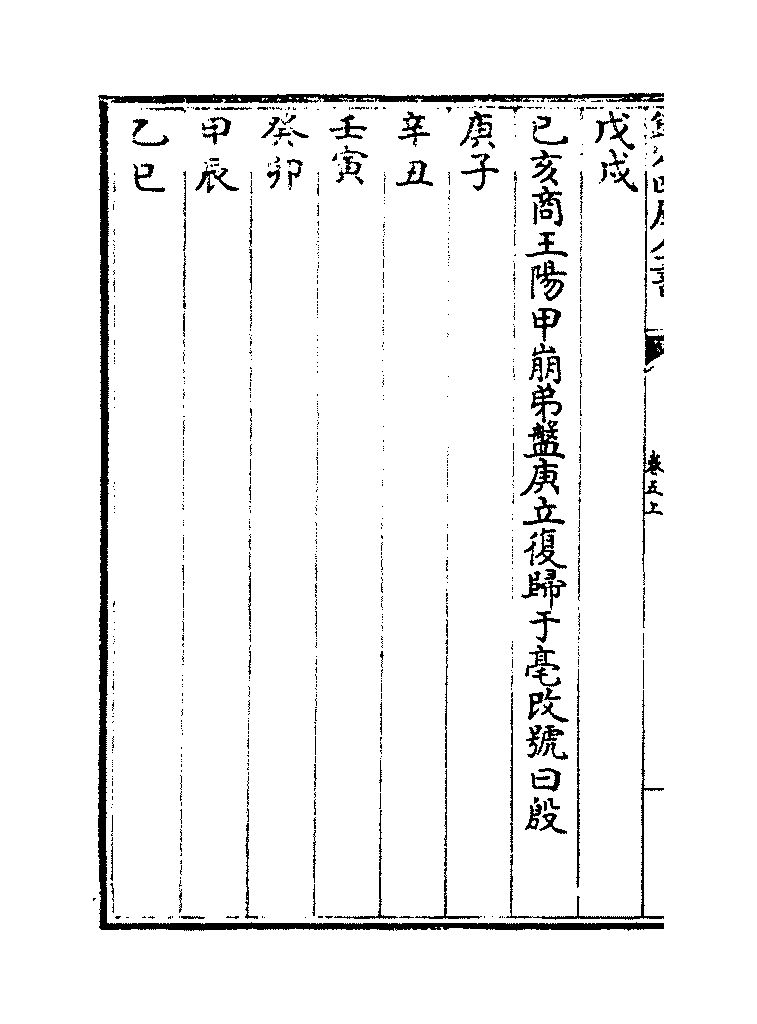 欽定四庫全書 卷五上
戊戌
己亥商王陽甲崩弟盤庚立復歸于亳改號曰殷
庚子
辛丑
壬寅
癸卯
甲辰
乙巳